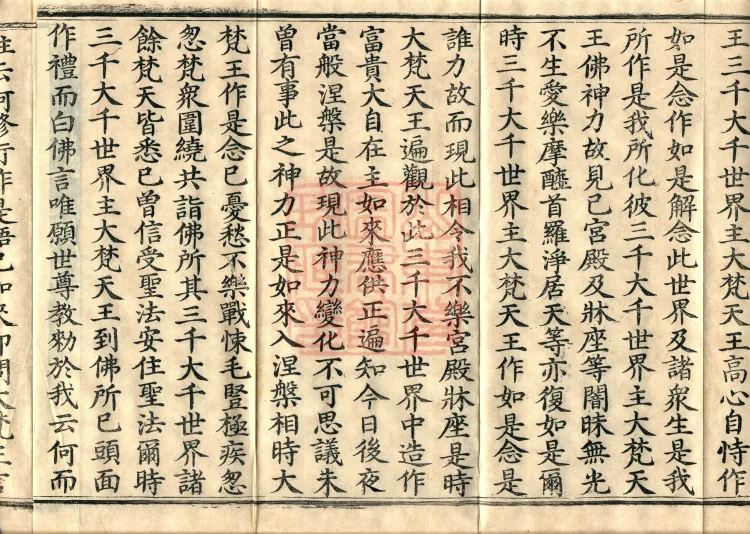 王三千大千世界主大梵天王高心自恃作
如是念作如是解念此世界及諸衆生是我
所作是我所化彼三千大千世界主大梵天
王佛神力故見已宮殿及牀座等闇昧無光
不生愛樂摩醯首羅淨居天等亦復如是爾
時三千大千世界主大梵天王作如是念是
誰力故而現此相令我不樂宮殿牀座是時
大梵天王遍觀於此三千大千世界中造作
富貴大自在主如來應供正遍知今日後夜
當般涅槃是故現此神力變化不可思議未
曾有事此之神力正是如來入涅槃相時大
梵王作是念已憂愁不樂戰悚毛豎極疾怱
怱梵衆圍繞共詣佛所其三千大千世界諸
餘梵天皆悉已曾信受聖法安住聖法爾時
三千大千世界主大梵天王到佛所已頭面
作禮而白佛言唯願世尊教勑於我云何而
住云何修行作是語已如來即問大梵王言